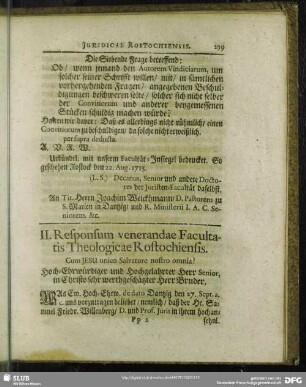 JURIDICAE ROSTOCHIENSIS. 299
Die Siebende Frage betreffend:
Ob/ wenn jemand den Autorem Vindiciarum, um
solcher seiner Schrifft willen/ mit/ in sämtlichen
vorhergehenden Fragen/ angegebenen Beschul-
digungen beschweren solte/ solcher sich nicht selber
der Convitiorum und anderer beygemessenen
Stücken schuldig machen würde?
Halten wir davor: Daß es allerdings nicht rühmlich/ einen
Convitiorum zu beschuldigen/ da solche nicht erweißlich.
per supra deducta.
A. V. R. W.
Uhrkündl. mit unserm Facultät-Insiegel bedrucket. So
geschehen Rostock den 22. Aug. 1715.
(L.S.) Decanus, Senior und andere Docto-
res der Juristen-Facultät daselbst.
An Tit. Herrn Joachim Weickhmann/ D. Pastorem zu
S. Marien in Dantzig/ und R. Ministerii I. A. C. Se-
niorem. &c.
II. Responsum venerandae Faculta-
tis Theologicae Rostochiensis.
Cum JESU unico Salvatore nostro omnia!
Hoch-Ehrwürdiger und Hochgelahrter Herr Senior,
in Christo sehr werthgeschätzter Herr Bruder,
Als Ew. Hoch-Ehrw. de dato Dantzig den 27. Sept. a.
c. uns vorzutragen beliebet/ nemlich/ daß der Hr. Sa-
muel Friedr. Willenberg/ D. und Prof. Juris in ihrem hochan-
Pp 2 sehnl.
SLUB
DFG